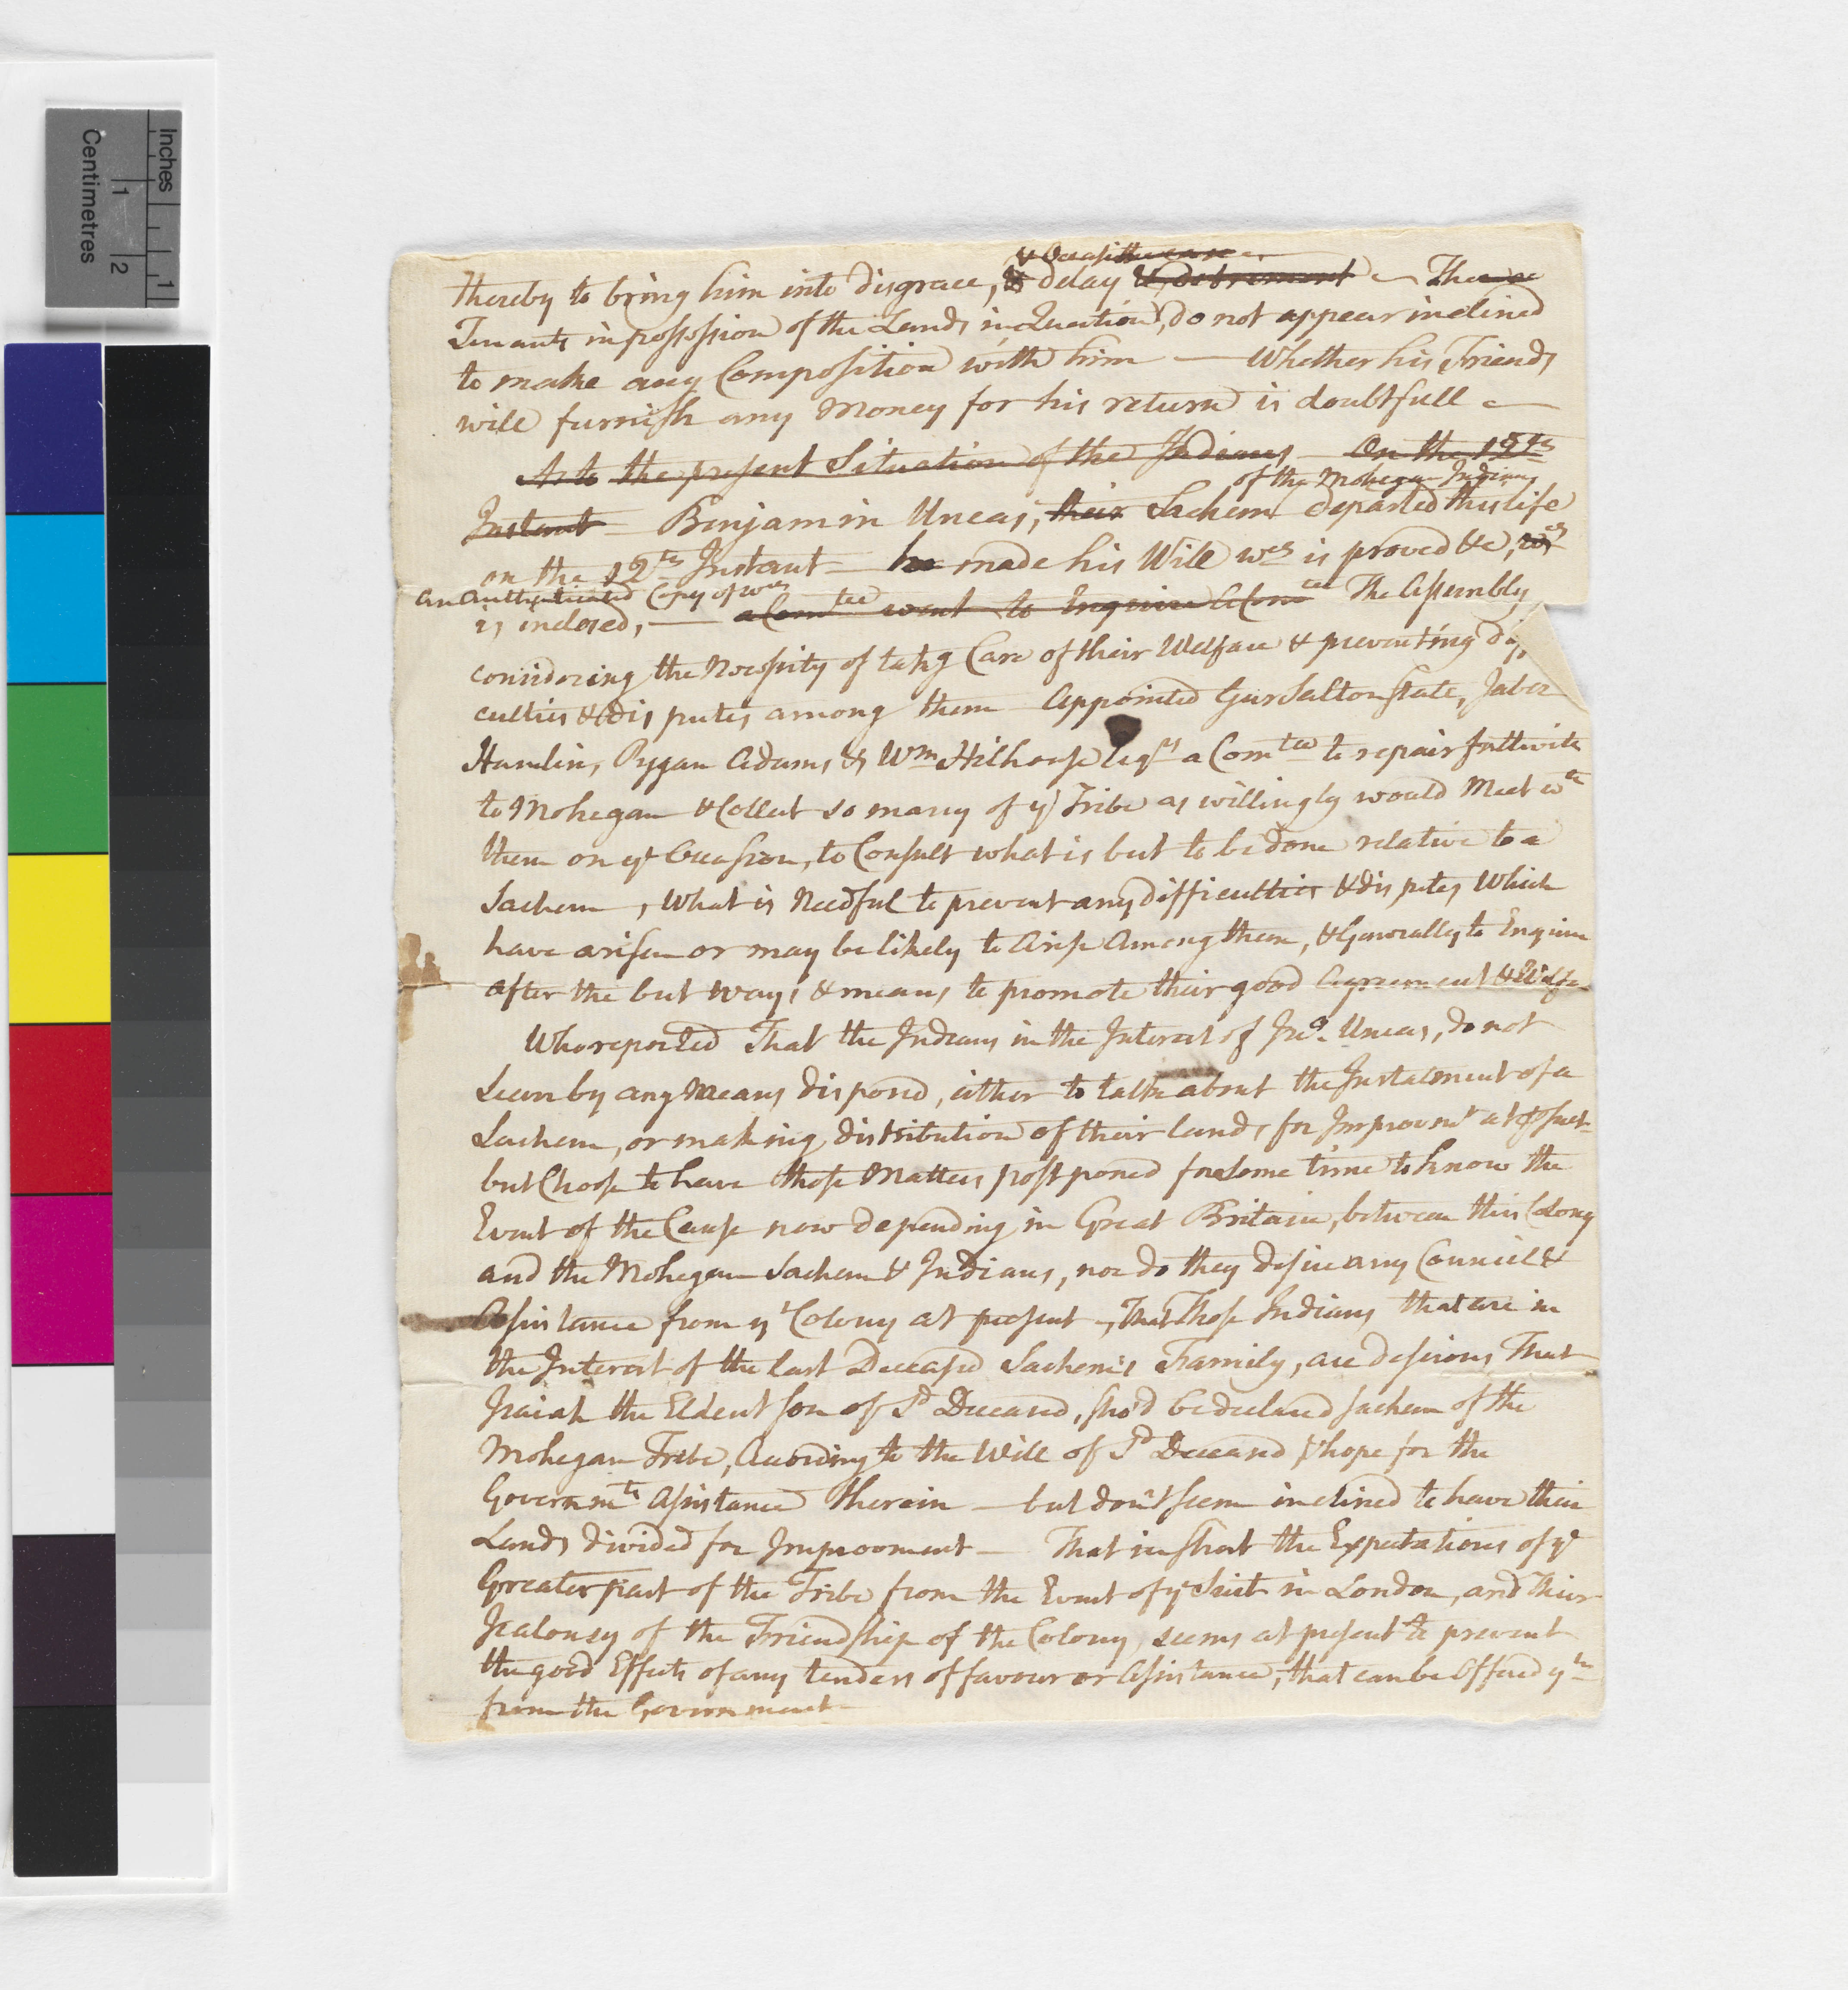 Inches
Centimetres
1
2
1
thereby to bring him into disgrace, & delay & detriment — The
Tenants in possession of the Lands in Question, do not appear inclined
to make any Composition with him — Whether his Friends
will furnish any Money for his return is doubtfull —
As to the present Situation of the Indians — On the 12th
of the Mohegan Indians
Instant — Benjamin Uncas, their Sachem departed this life
on the 12th Instant — he made his Will wch is proved &c,
an Authenticated Copy of wch
is inclosed, — a Comtee went to Enquire a Comtee The Assembly
considering the Necessity of takg Care of their Welfare & preventing dif
culties & disputes among them Appointed Gur Saltonstale, Jabez
Hamlin, Pygan Adams & Wm Hilhouse Esqrs a Comtee to repair forthwith
to Mohegan & Collect so many of ye Tribe as willingly would Meet wth
them on yt Occasion, to Consult what is best to be done relative to a
Sachem, What is Needful to prevent any difficulties & disputes Which
have arisen or may be likely to Arise Among them, & Generally to Enquire
after the best ways & means to promote their good Agreement & Welfare
Who reported That the Indians in the Interest of Jno. Uncas, do not
seem by any Means disposed, either to talk about the Instalment of a
Sachem, or making distribution of their lands for Improvmt at psent
but Choose to have those Matters postponed for some time to know the
Event of the Cause now depending in Great Britain, between this Colony
and the Mohegan Sachem & Indians, nor do they desire any Council &
Assistance from ye Colony at present —, That those Indians that are in
the Interest of the last Deceased Sachem's Family, are desirous That
Isaiah the Eldest son of sd Deceased, sho'd be declared Sachem of the
Mohegan Tribe, According to the Will of sd Deceased & hope for the
Governmts Assistance therein — but don't seem inclined to have their
Lands divided for Improvment — That in short the Expectations of ye
Greater part of the Tribe from the Event of ye Suit in London, and their
Jealousy of the Friendship of the Colony, seems at present to prevent
the good Effects of any tenders of favour or Assistance, that can be Offered ym
from the Government